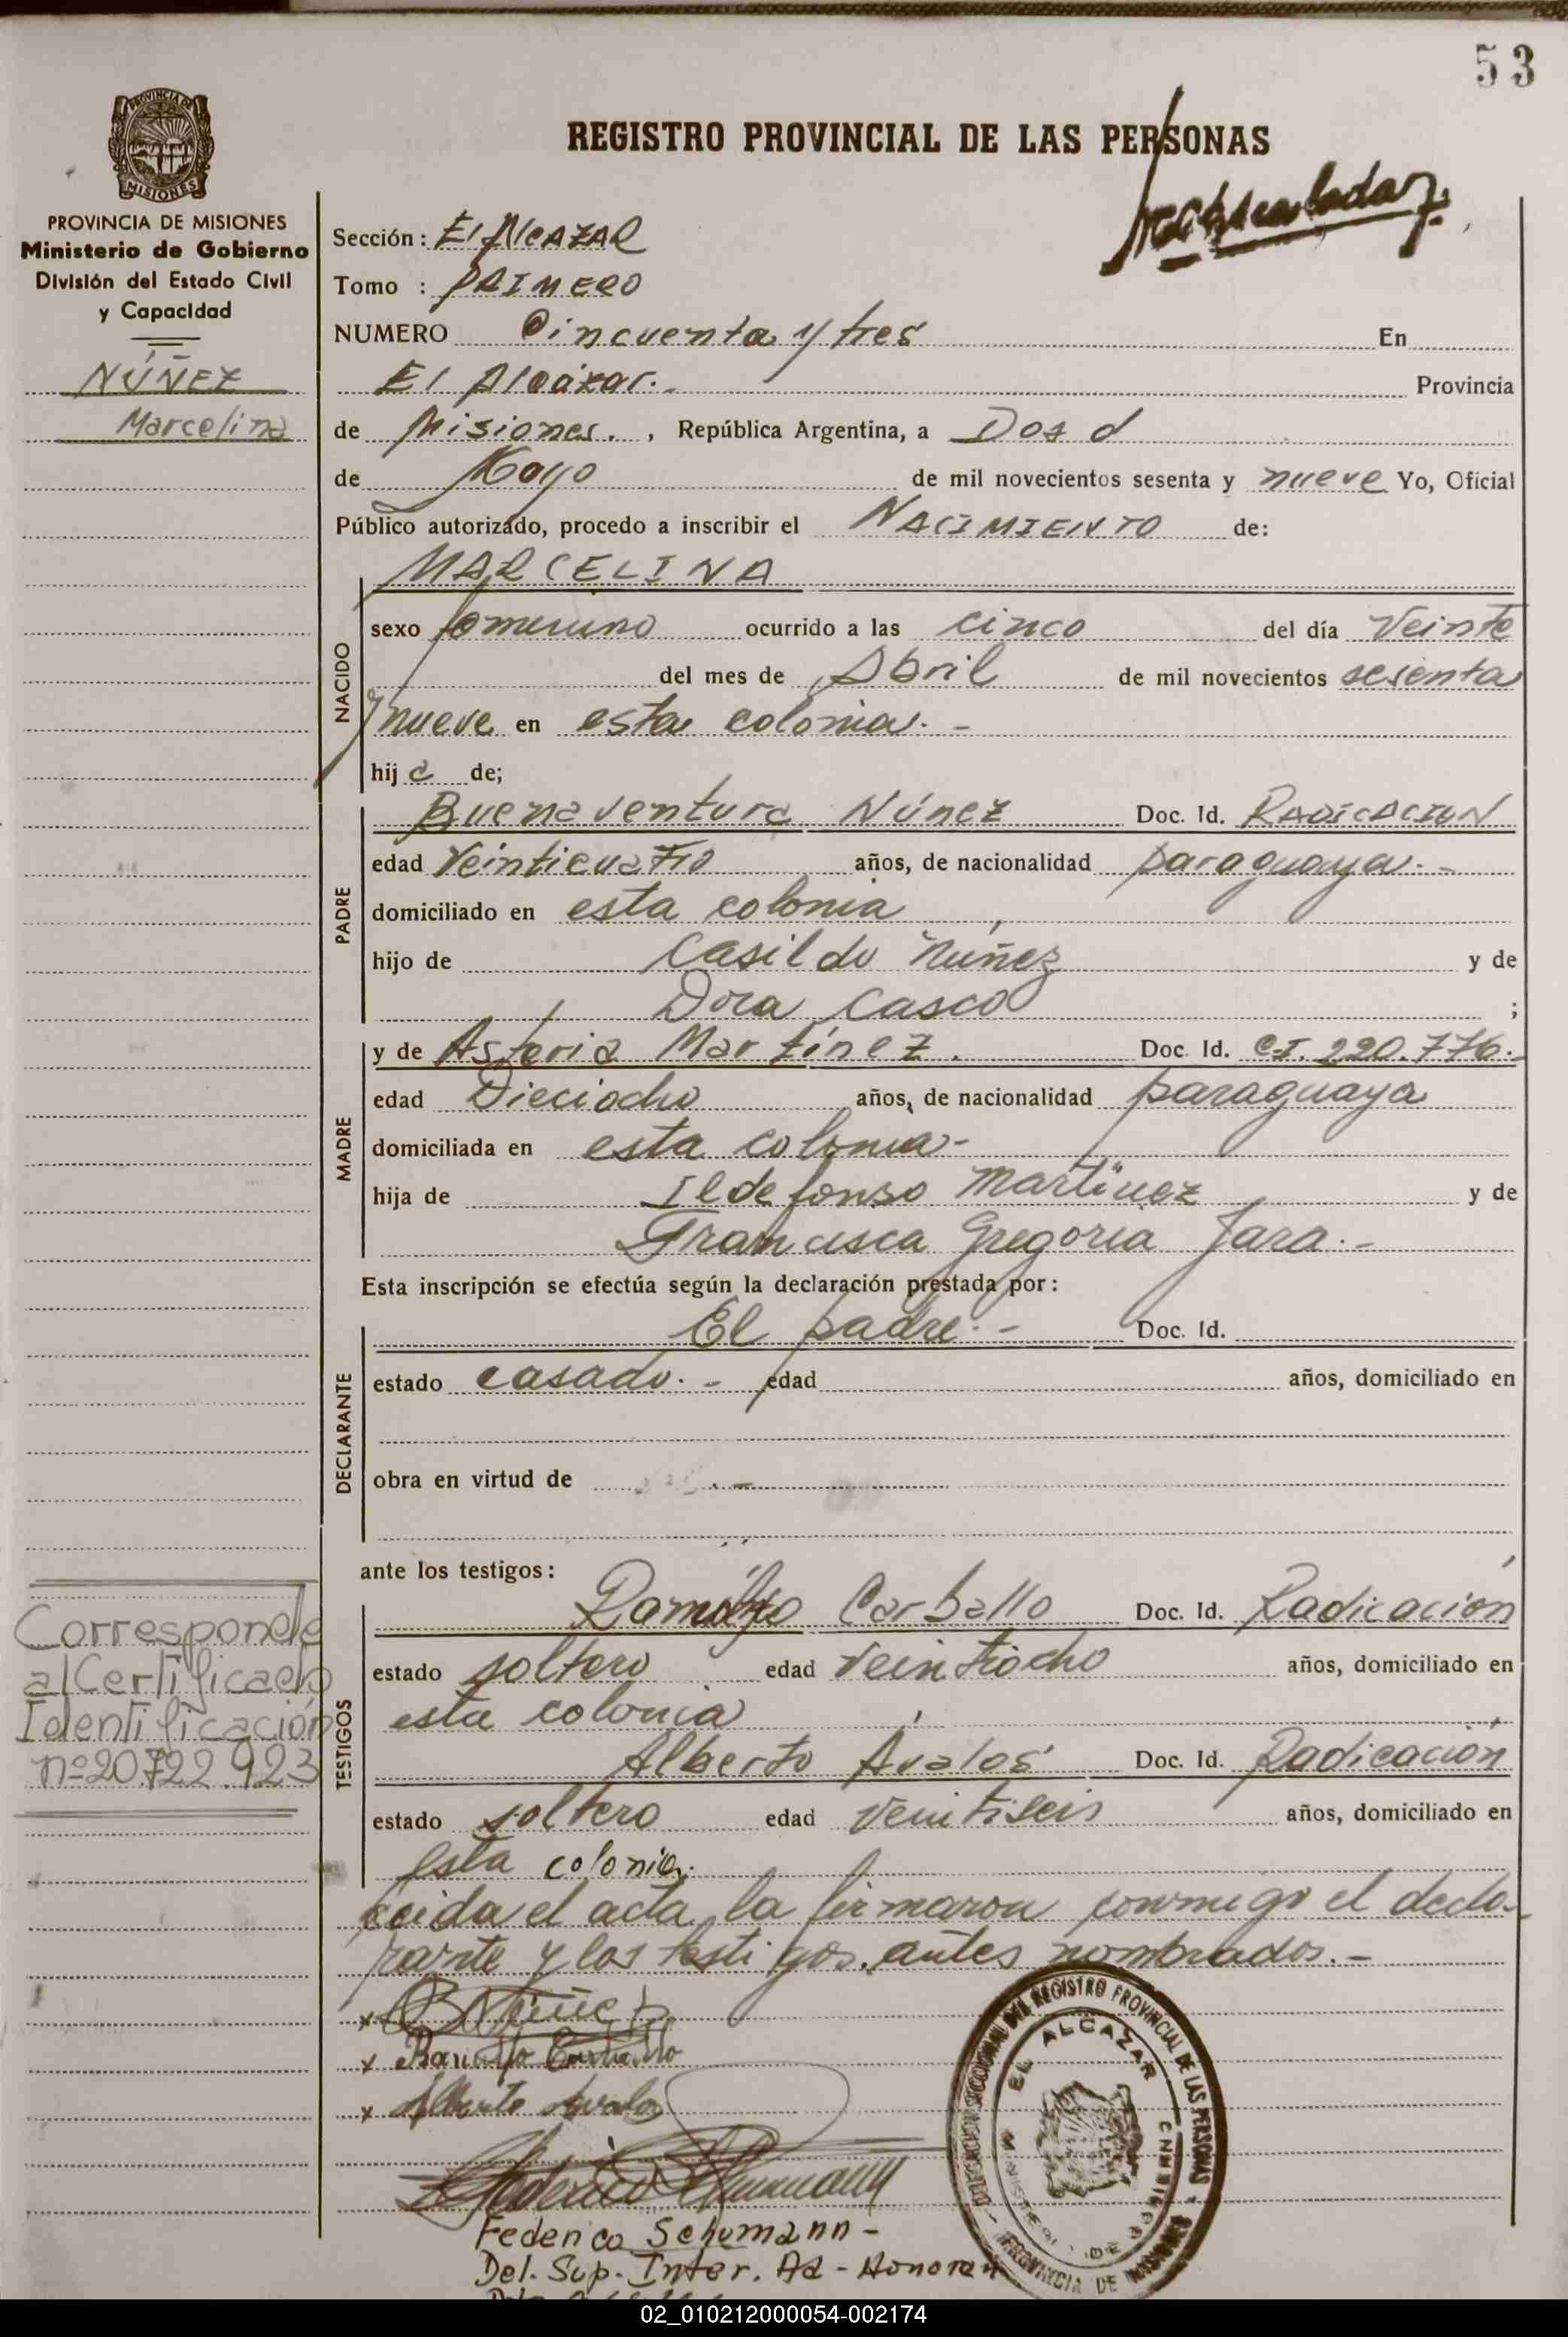 53
PROVINCIA DE
MISIONES
REGISTRO PROVINCIAL DE LAS PERSONAS
PROVINCIA DE MISIONES
Ministerio de Gobierno
División del Estado Civil
y Capacidad
NÚÑEZ
Marcelina
Sección: El AlcAZAR
Tomo : PRIMERO
NUMERO Cincuenta y tres En
El Alcázar.- Provincia
de Misiones. , República Argentina, a Dos d
de Mayo de mil novecientos sesenta y nueve Yo, Oficial
Público autorizado, procedo a inscribir el NACIMIENTO de:
NACIDO
MARCELINA
sexo femenino ocurrido a las cinco del día Veinte
del mes de Abril de mil novecientos sesenta
y nueve en esta colonia.-
hija de;
PADRE
Buenaventura Núñez Doc. Id. RADICACION
edad Veinticuatro años, de nacionalidad paraguaya.-
domiciliado en esta colonia
hijo de Casildo Nuñez y de
Dora Casco ;
MADRE
y de Asteria Martínez. Doc. Id. C.I. 220.776.-
edad Dieciocho años, de nacionalidad paraguaya
domiciliada en esta colonia-
hija de Ildefonso Martínez y de
Francisca Gregoria Jara.-
Esta inscripción se efectúa según la declaración prestada por:
DECLARANTE
El padre.- Doc. Id.
estado casado.- edad años, domiciliado en
obra en virtud de .-
ante los testigos:
TESTIGOS
Carballo Doc. Id. Radicación
estado soltero edad Veintiocho años, domiciliado en
esta colonia
Alberto Avalos Doc. Id. Radicación
estado soltero edad Veintiseis años, domiciliado en
esta colonia.
Leida el acta, la firmaron conmigo el decla-
rante y los testigos antes nombrados.-
Corresponde
al Certificado
Identificación
nº 20.722.923
x B Núñez
x Carballo
x Alberto Avalos
Federico Schumann
Federico Schumann-
Del. Sup. Inter. Ad-Honorem
REGISTRO PROVINCIAL DE LAS PERSONAS
EL ALCAZAR
PROVINCIA DE MISIONES
02_010212000054-002174